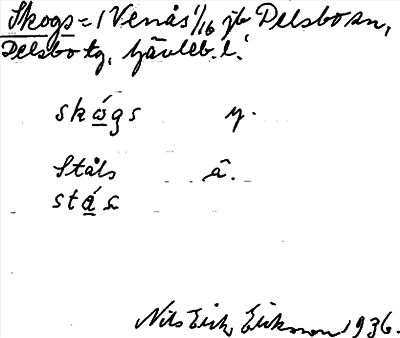 Skogs = 1 Venås 1/16 jb Delsbo sn,
Delsbo tg, Gävleb. l.
skógs y.
Ståls å.
stá s
Nils Erik Eriksson 1936.